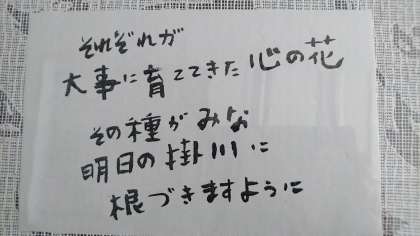 それぞれが
大事に育ててきた心の花
その種がみな
明日の掛川に
根づきますように